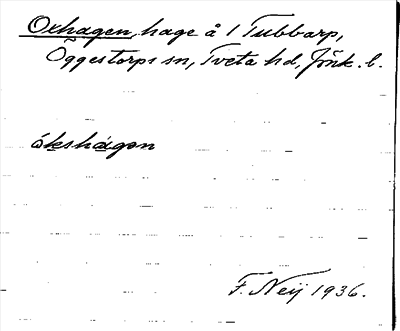 Oxhagen, hage å 1 Tubbarp,
Öggestorps sn, Tveta hd, Jönk. l.
ókshàgən
F. Neij 1936.